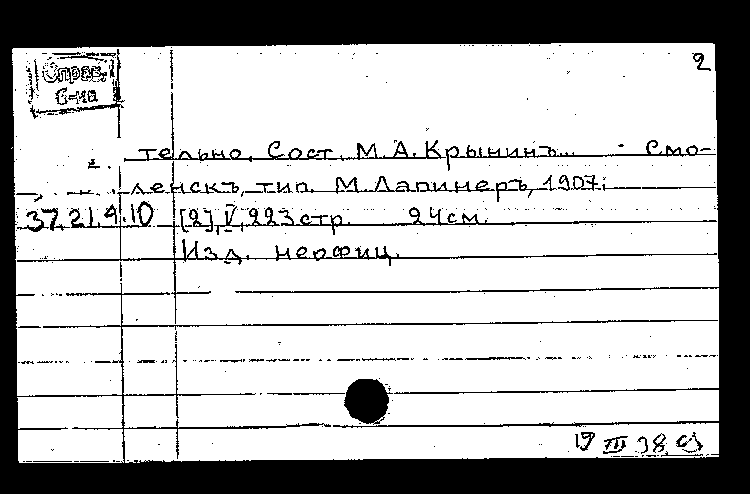 2
Справ.
б-ка
тельно. Сост. М.А.Крынинъ... - Смо-
ленскъ, тип. М.Лапинеръ, 1907;
37.21.4.10 [2],V,223 стр. 24см.
Изд. неофиц.
III 38